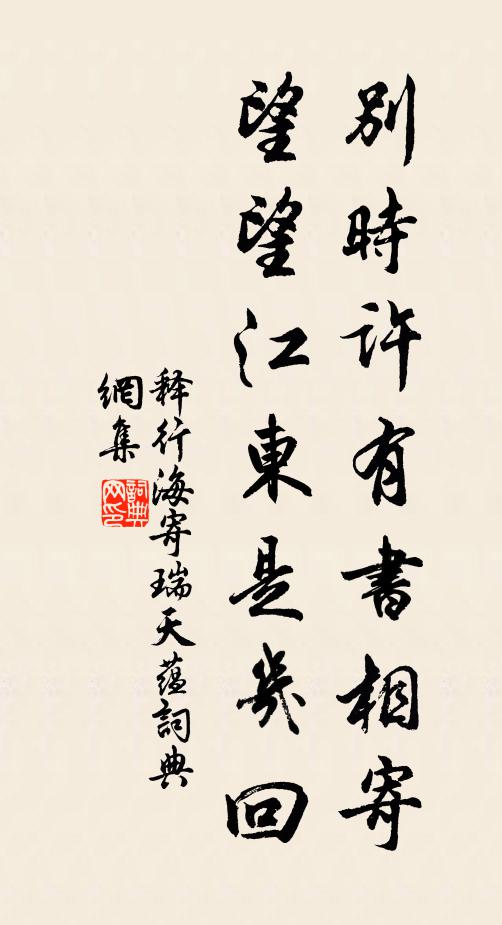 別時許有書相寄
望望江東是幾回
释行海寄瑞天蘊詞典
網集
詞典網印